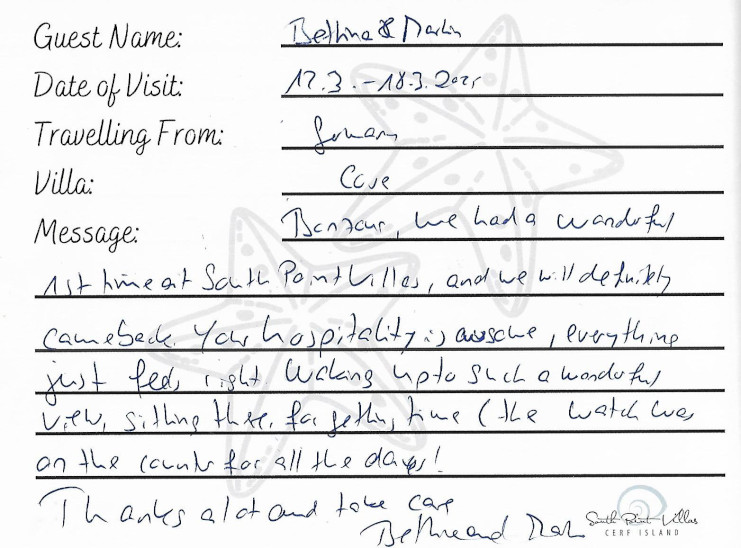 Guest Name: Bettina & Martin
Date of Visit: 12.3.-18.3.2025
Travelling From: Germany
Villa: Cove
Message: Bonzour, we had a wonderful
1st time at South Point Villas, and we will definitely
come back. Your hospitality is awsome, everything
just feels right. Waking up to such a wonderful
view, sitting there, forgetting time (the watch was
on the counter for all the days!
Thanks a lot and take care
Bettina and Martin
South Point Villas
CERF ISLAND